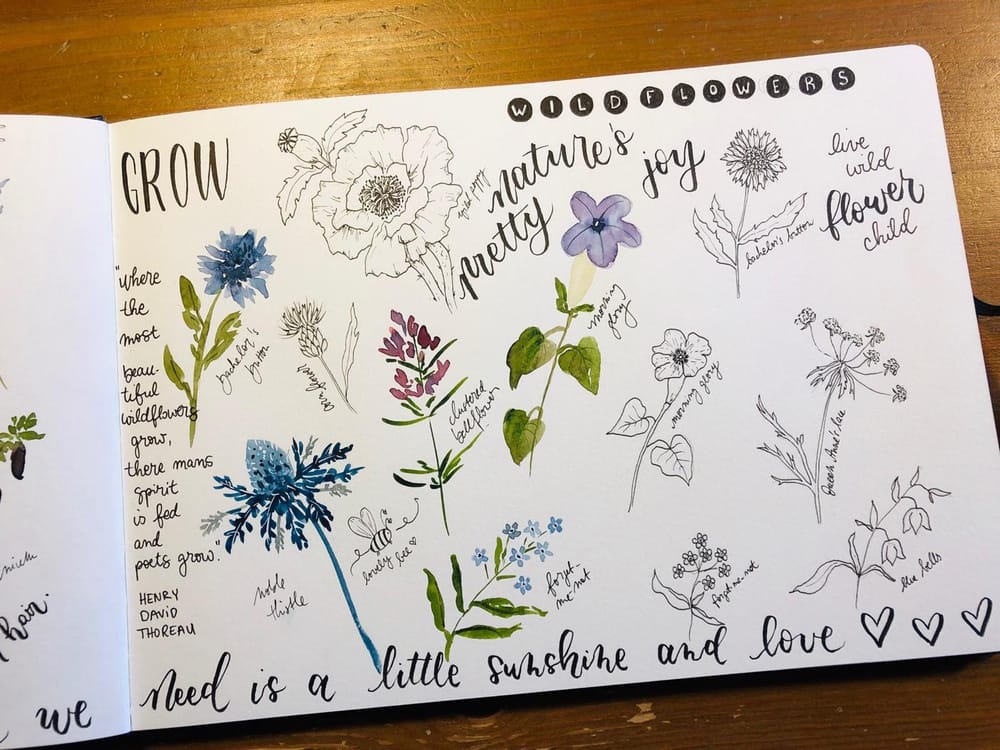 WILDFLOWERS
GROW
wild poppy
nature's
joy
pretty
live
wild
flower
child
bachelor's button
"where
the
most
beau-
tiful
wildflowers
grow,
there mans
spirit
is fed
and
poets grow."
HENRY
DAVID
THOREAU
bachelor's
button
clustered
bellflower
morning
glory
morning glory
Queen Anne's lace
noble
thistle
lovely bee ♡
forget-
me-not
forget-me-not
blue bells
hair.
we need is a little sunshine and love ♡ ♡ ♡